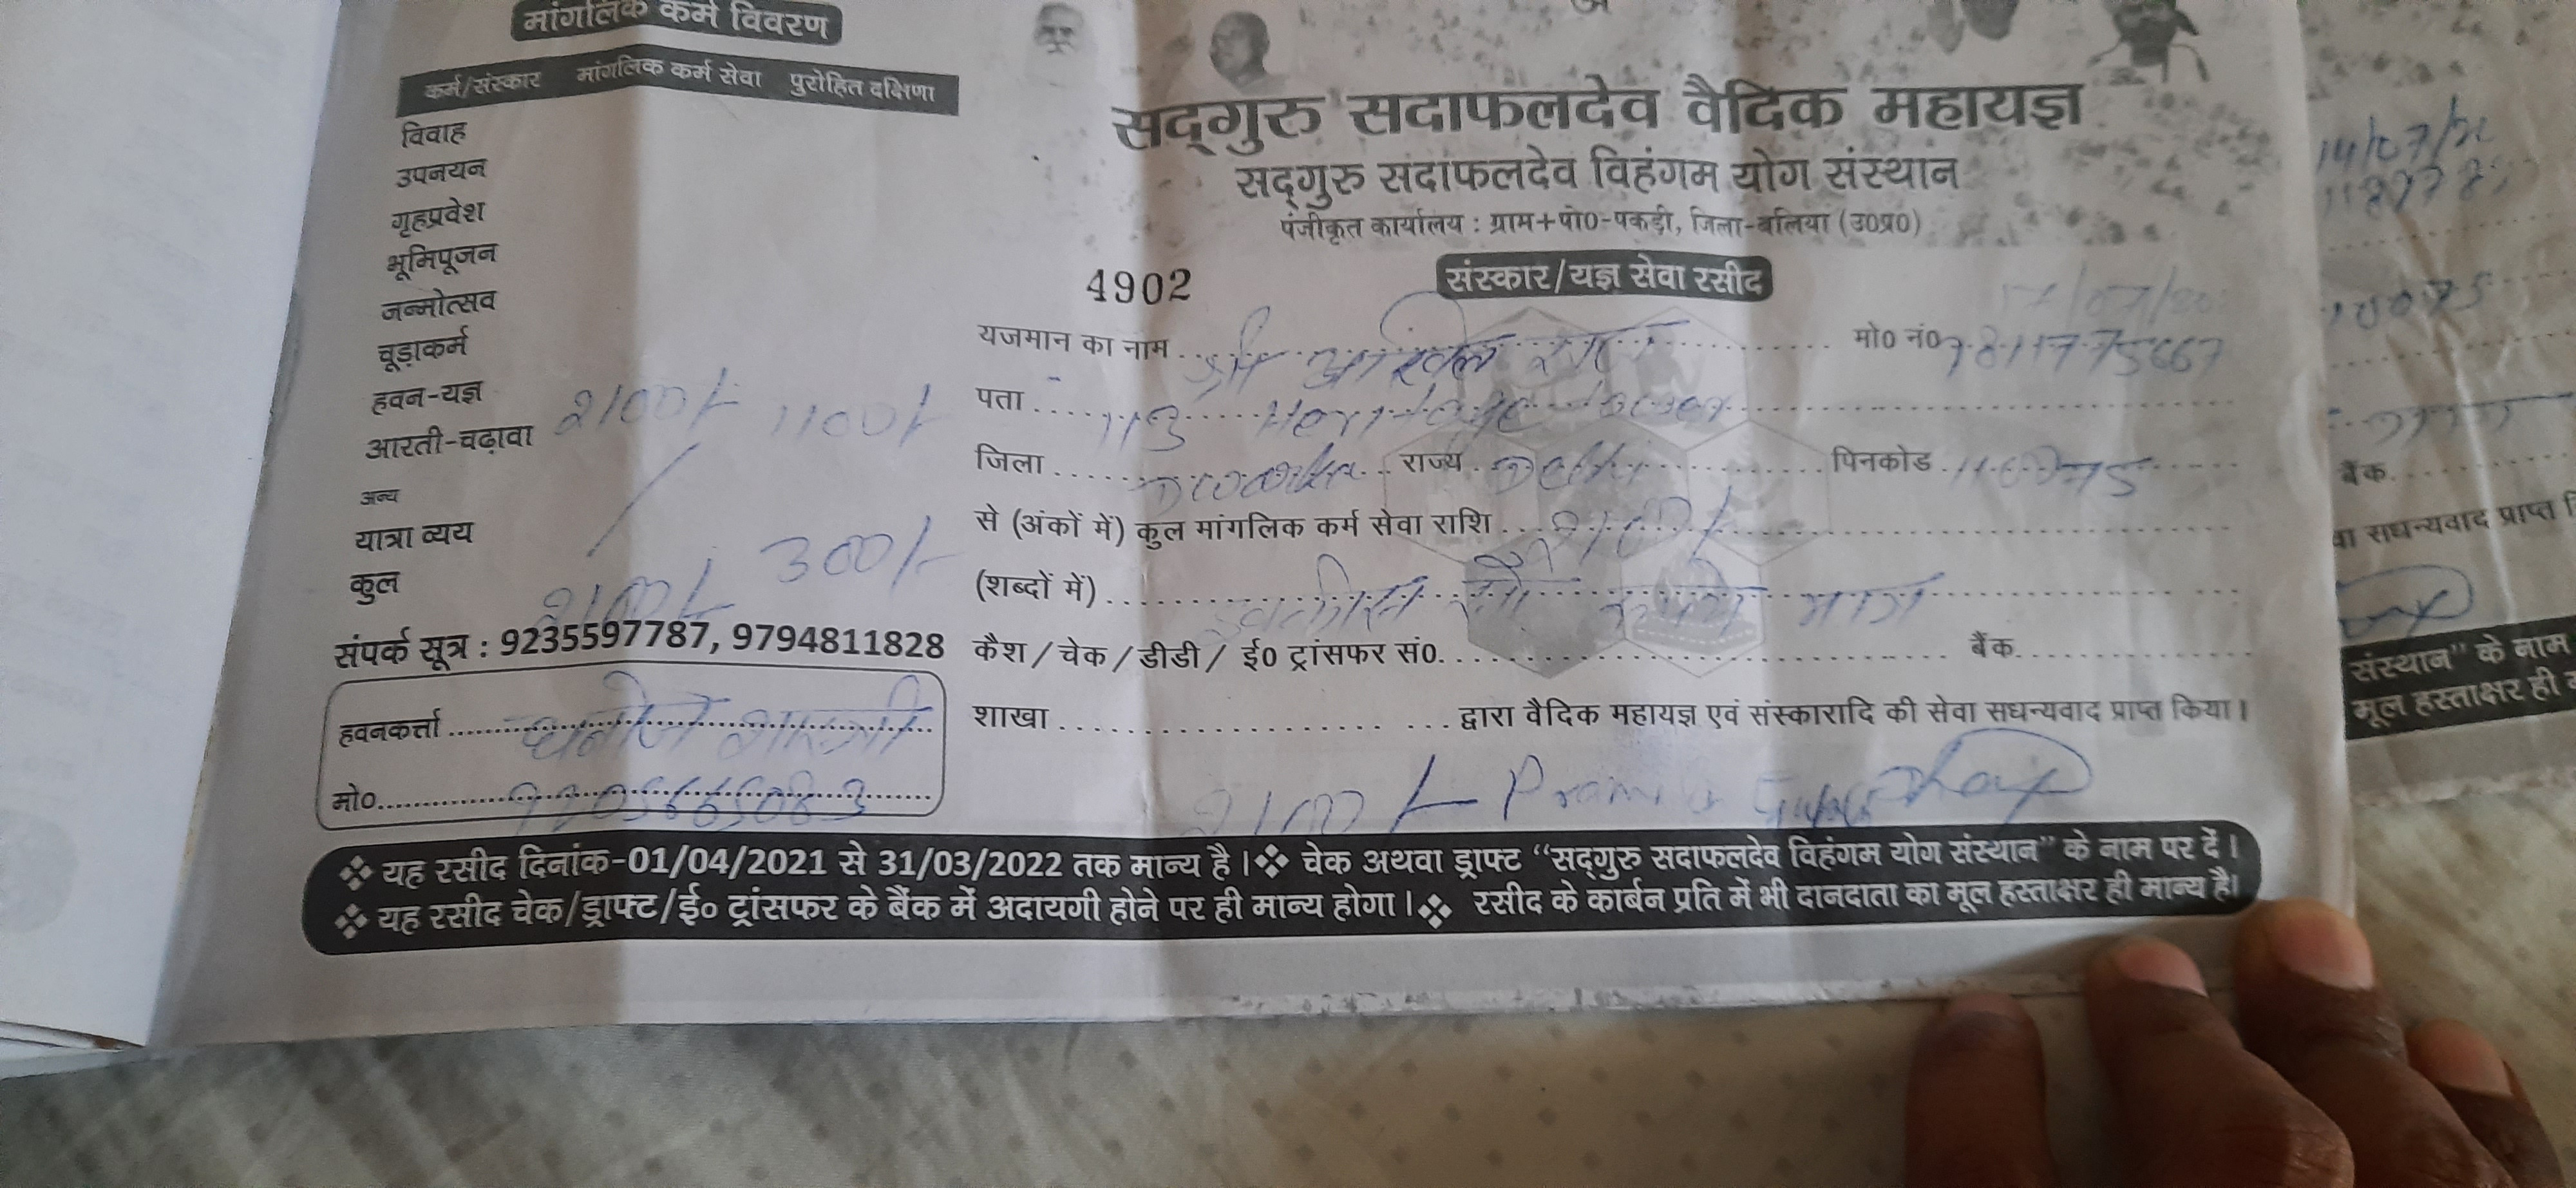 मांगलिक कर्म विवरण
कर्म/संस्कार मांगलिक कर्म सेवा पुरोहित दक्षिणा
विवाह
उपनयन
गृहप्रवेश
भूमिपूजन
जन्मोत्सव
चूड़ाकर्म
हवन-यज्ञ 2100/- 1100/-
आरती-चढ़ावा
अन्य
यात्रा व्यय 300/-
कुल 2100/-
संपर्क सूत्र : 9235597787, 9794811828
हवनकर्त्ता
मो०
सद्गुरु सदाफलदेव वैदिक महायज्ञ
सद्गुरु सदाफलदेव विहंगम योग संस्थान
पंजीकृत कार्यालय : ग्राम+पो0-पकड़ी, जिला-बलिया (उ0प्र0)
4902 संस्कार/यज्ञ सेवा रसीद
यजमान का नाम श्री मो0 नं0 9811775667
पता 113 Heritage
जिला Dwarka राज्य Delhi पिनकोड 110075
से (अंकों में) कुल मांगलिक कर्म सेवा राशि 2100/-
(शब्दों में) इक्कीस सौ रूपये मात्र
कैश / चेक / डीडी / ई0 ट्रांसफर सं0. बैंक
शाखा द्वारा वैदिक महायज्ञ एवं संस्कारादि की सेवा सधन्यवाद प्राप्त किया।
2100/-
❖ यह रसीद दिनांक-01/04/2021 से 31/03/2022 तक मान्य है। ❖ चेक अथवा ड्राफ्ट “सद्गुरु सदाफलदेव विहंगम योग संस्थान” के नाम पर दें।
❖ यह रसीद चेक/ड्राफ्ट/ई० ट्रांसफर के बैंक में अदायगी होने पर ही मान्य होगा। ❖ रसीद के कार्बन प्रति में भी दानदाता का मूल हस्ताक्षर ही मान्य है।
बैंक
सधन्यवाद प्राप्त
संस्थान” के नाम
मूल हस्ताक्षर ही